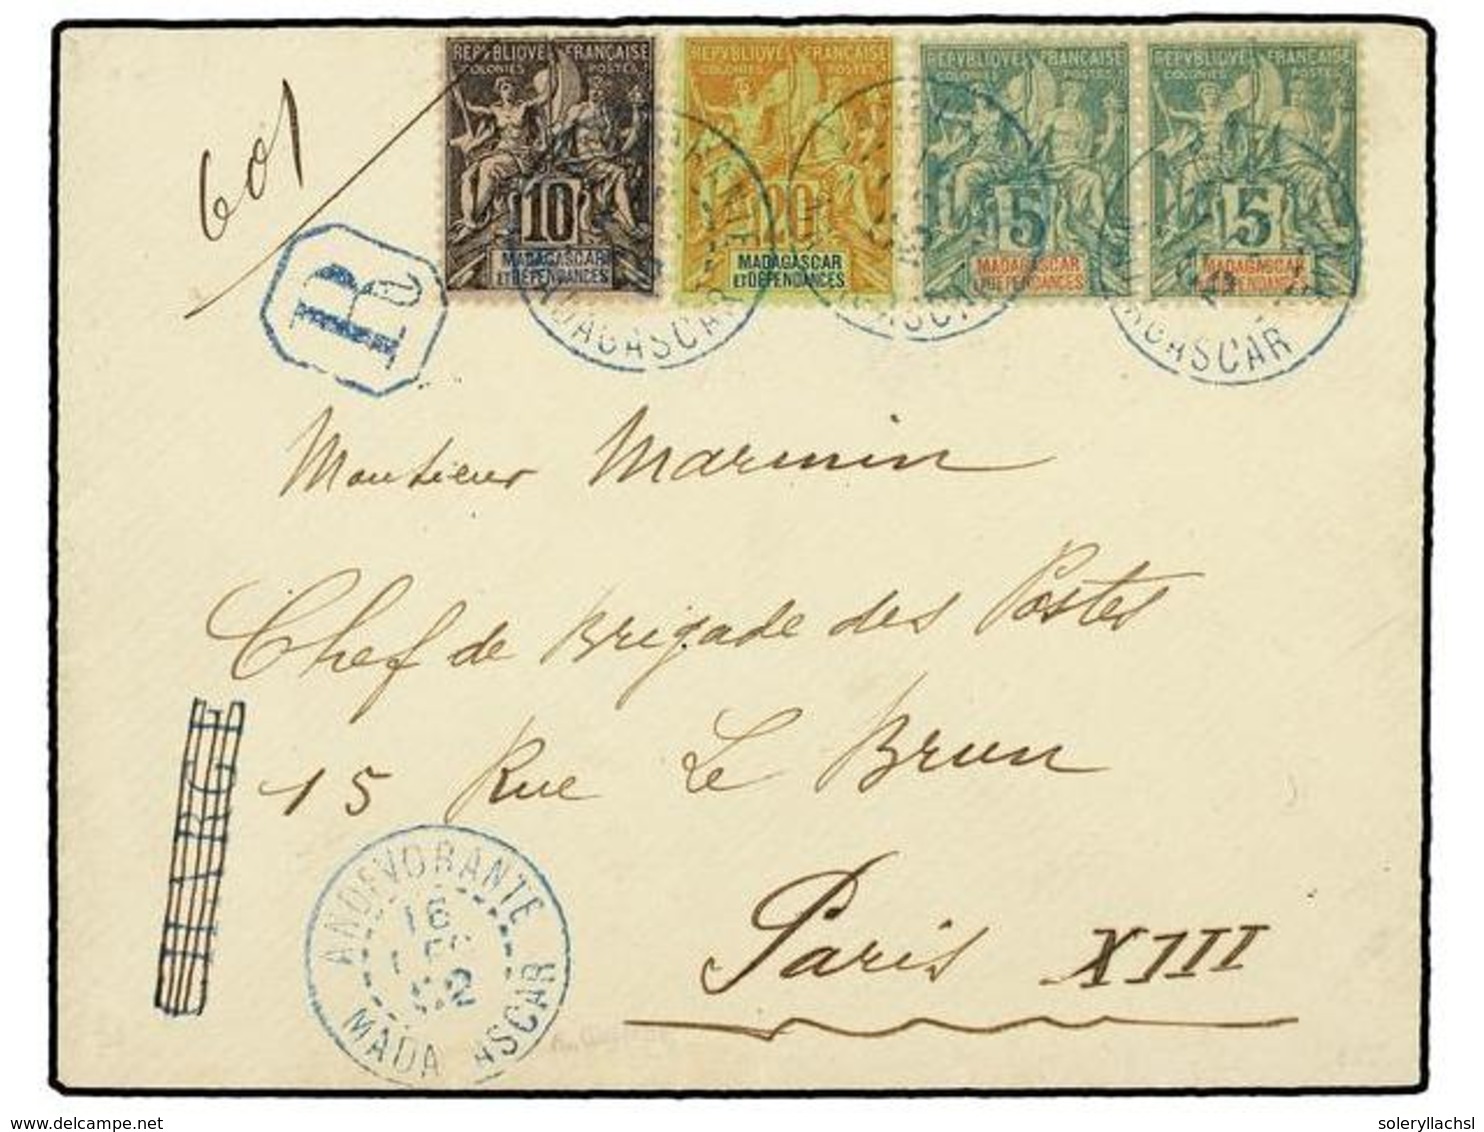 REPVBLIQVE FRANÇAISE
COLONIES POSTES
10
MADAGASCAR
ET DÉPENDANCES
REPVBLIQVE FRANÇAISE
COLONIES POSTES
20
MADAGASCAR
ET DÉPENDANCES
REPVBLIQVE FRANÇAISE
COLONIES POSTES
5
MADAGASCAR
ET DÉPENDANCES
REPVBLIQVE FRANÇAISE
COLONIES POSTES
5
MADAGASCAR
ET DÉPENDANCES
601
R
Monsieur Marmin
Chef de Brigade des Postes
15 Rue Le Brun
Paris XIII
CHARGÉ
ANDEVORANTE
16
MADAGASCAR
delcampe.net
soleryllachsl